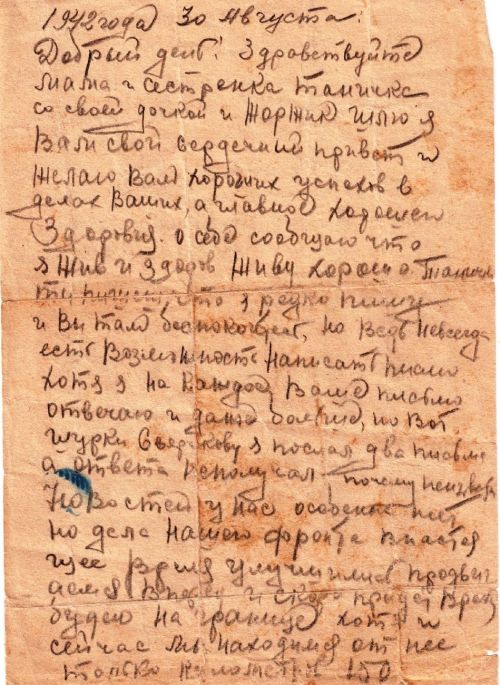 1942 года 30 Августа:
Добрый день! Здравствуйте
мама и сестренка Таничка
со своей дочкой и Жоржик шлю я
Вам свой сердечный привет и
желаю Вам хороших успехов в
делах Ваших, а главное хорошего
Здоровия. О себе сообщаю что
я Жив и здоров Живу хорошо. Таничка
ты пишеш, что я редко пишу
и Вы там беспокоитес, но Ведь невсегда
есть Возможность написать писмо
хотя я на каждое Ваше письмо
отвечаю и даже больше, но Вот
Шурки я послал два письма
а ответа неполучал почему неизвесно
Новостей у нас особенно нет,
но дела Нашего фронта Внастоя
щее Время улучшились продвиг
аемся В перед и скоро
будею на границе хотя и
сейчас мы находимся от нее
только километров 150